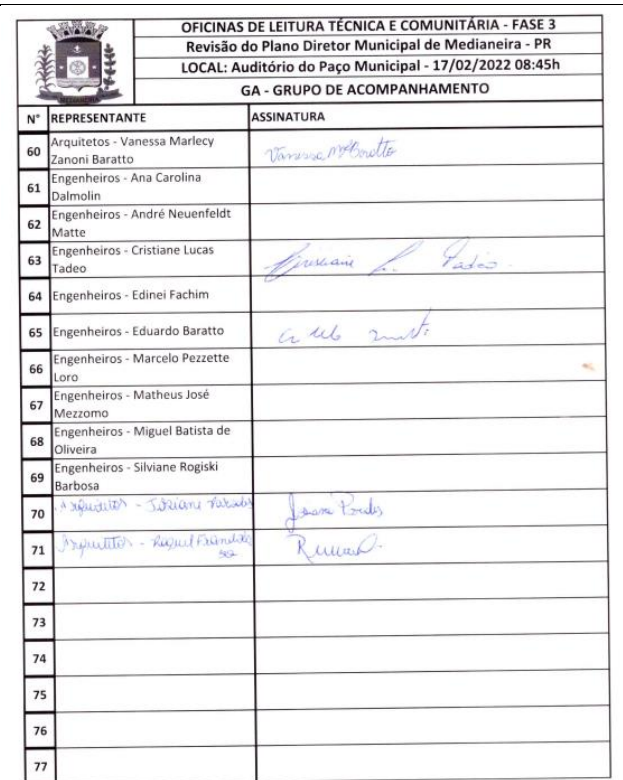 OFICINAS DE LEITURA TÉCNICA E COMUNITÁRIA - FASE 3
Revisão do Plano Diretor Municipal de Medianeira - PR
LOCAL: Auditório do Paço Municipal - 17/02/2022 08:45h
GA - GRUPO DE ACOMPANHAMENTO
MEDIANEIRA
N° REPRESENTANTE ASSINATURA
60 Arquitetos - Vanessa Marlecy
Zanoni Baratto
Vanessa
61 Engenheiros - Ana Carolina
Dalmolin
62 Engenheiros - André Neuenfeldt
Matte
63 Engenheiros - Cristiane Lucas
Tadeo
Cristiane L. Tadeo
64 Engenheiros - Edinei Fachim
65 Engenheiros - Eduardo Baratto
66 Engenheiros - Marcelo Pezzette
Loro
67 Engenheiros - Matheus José
Mezzomo
68 Engenheiros - Miguel Batista de
Oliveira
69 Engenheiros - Silviane Rogiski
Barbosa
70 Arquitetos -
71 Arquitetos - Raquel
72
73
74
75
76
77